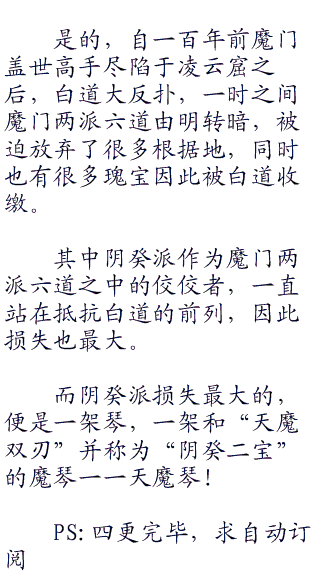 是的，自一百年前魔门
盖世高手尽陷于凌云窟之
后，白道大反扑，一时之间
魔门两派六道由明转暗，被
迫放弃了很多根据地，同时
也有很多瑰宝因此被白道收
缴。
其中阴癸派作为魔门两
派六道之中的佼佼者，一直
站在抵抗白道的前列，因此
损失也最大。
而阴癸派损失最大的，
便是一架琴，一架和“天魔
双刃”并称为“阴癸二宝”
的魔琴一一天魔琴！
PS: 四更完毕，求自动订
阅